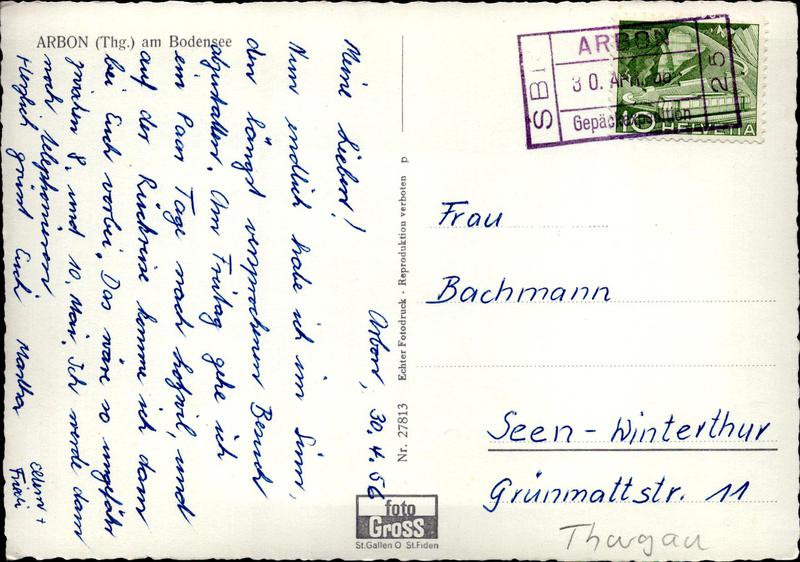 ARBON (Thg.) am Bodensee
Arbon, 30.4.56
Meine Lieben!
Nun endlich habe ich im Sinn,
den längst versprochenen Besuch
abzustatten. Am Freitag gehe ich
ein Paar Tage nach Hofwil, und
auf der Rückreise komme ich dann
bei Euch vorbei. Das wäre so ungefähr
zwischen 8. und 10. Mai. Ich werde dann
noch telephonieren
Herzlich grüsst Euch Martha
Eltern +
Nr. 27813 Echter Fotodruck - Reproduktion verboten p
foto
Gross
St.Gallen O St.Fiden
SBB
ARBON
30. APR.
Gepäckexpedition
25
10 HELVETIA
Frau
Bachmann
Seen - Winterthur
Grünmattstr. 11
Thurgau